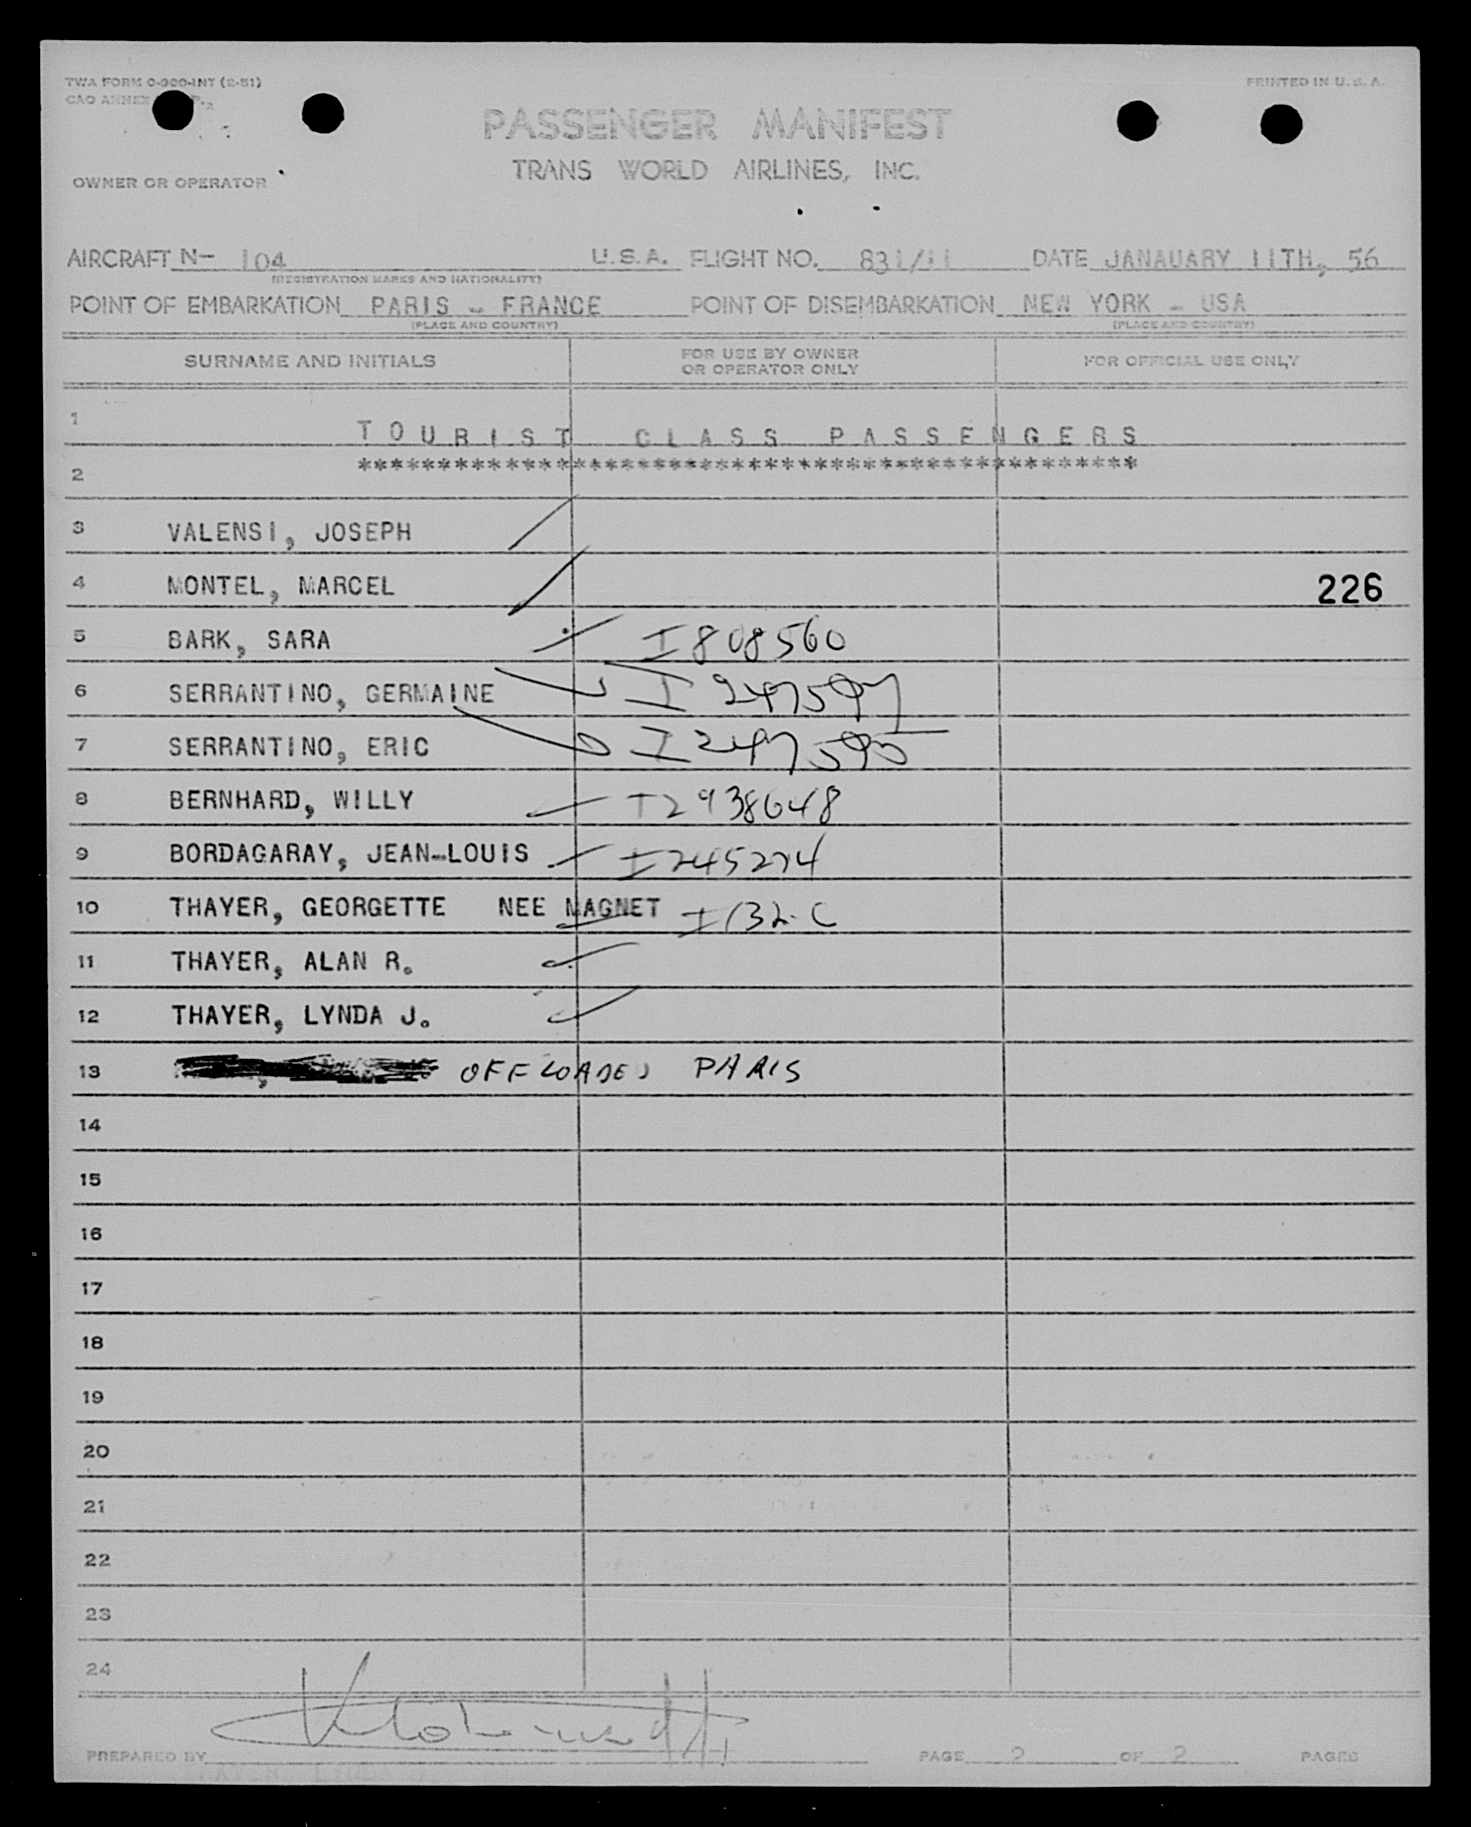 TWA FORM 0-900-INT (2-51)
PRINTED IN U. S. A.
CAO ANNEX
PASSENGER MANIFEST
TRANS WORLD AIRLINES, INC.
OWNER OR OPERATOR
AIRCRAFT N- 104 U.S.A. FLIGHT NO. 831/11 DATE JANAUARY 11TH, 56
(REGISTRATION MARKS AND NATIONALITY)
POINT OF EMBARKATION PARIS - FRANCE POINT OF DISEMBARKATION NEW YORK - USA
(PLACE AND COUNTRY) (PLACE AND COUNTRY)
SURNAME AND INITIALS FOR USE BY OWNER OR OPERATOR ONLY FOR OFFICIAL USE ONLY
1 TOURIST CLASS PASSENGERS
2 *************************************************
3 VALENSI, JOSEPH
4 MONTEL, MARCEL 226
5 BARK, SARA I 808560
6 SERRANTINO, GERMAINE I 247597
7 SERRANTINO, ERIC I 247590
8 BERNHARD, WILLY I2938648
9 BORDAGARAY, JEAN-LOUIS I245274
10 THAYER, GEORGETTE NEE MAGNET I132-C
11 THAYER, ALAN R.
12 THAYER, LYNDA J.
13 OFFLOADED PARIS
14
15
16
17
18
19
20
21
22
23
24
PREPARED BY PAGE 2 OF 2 PAGES